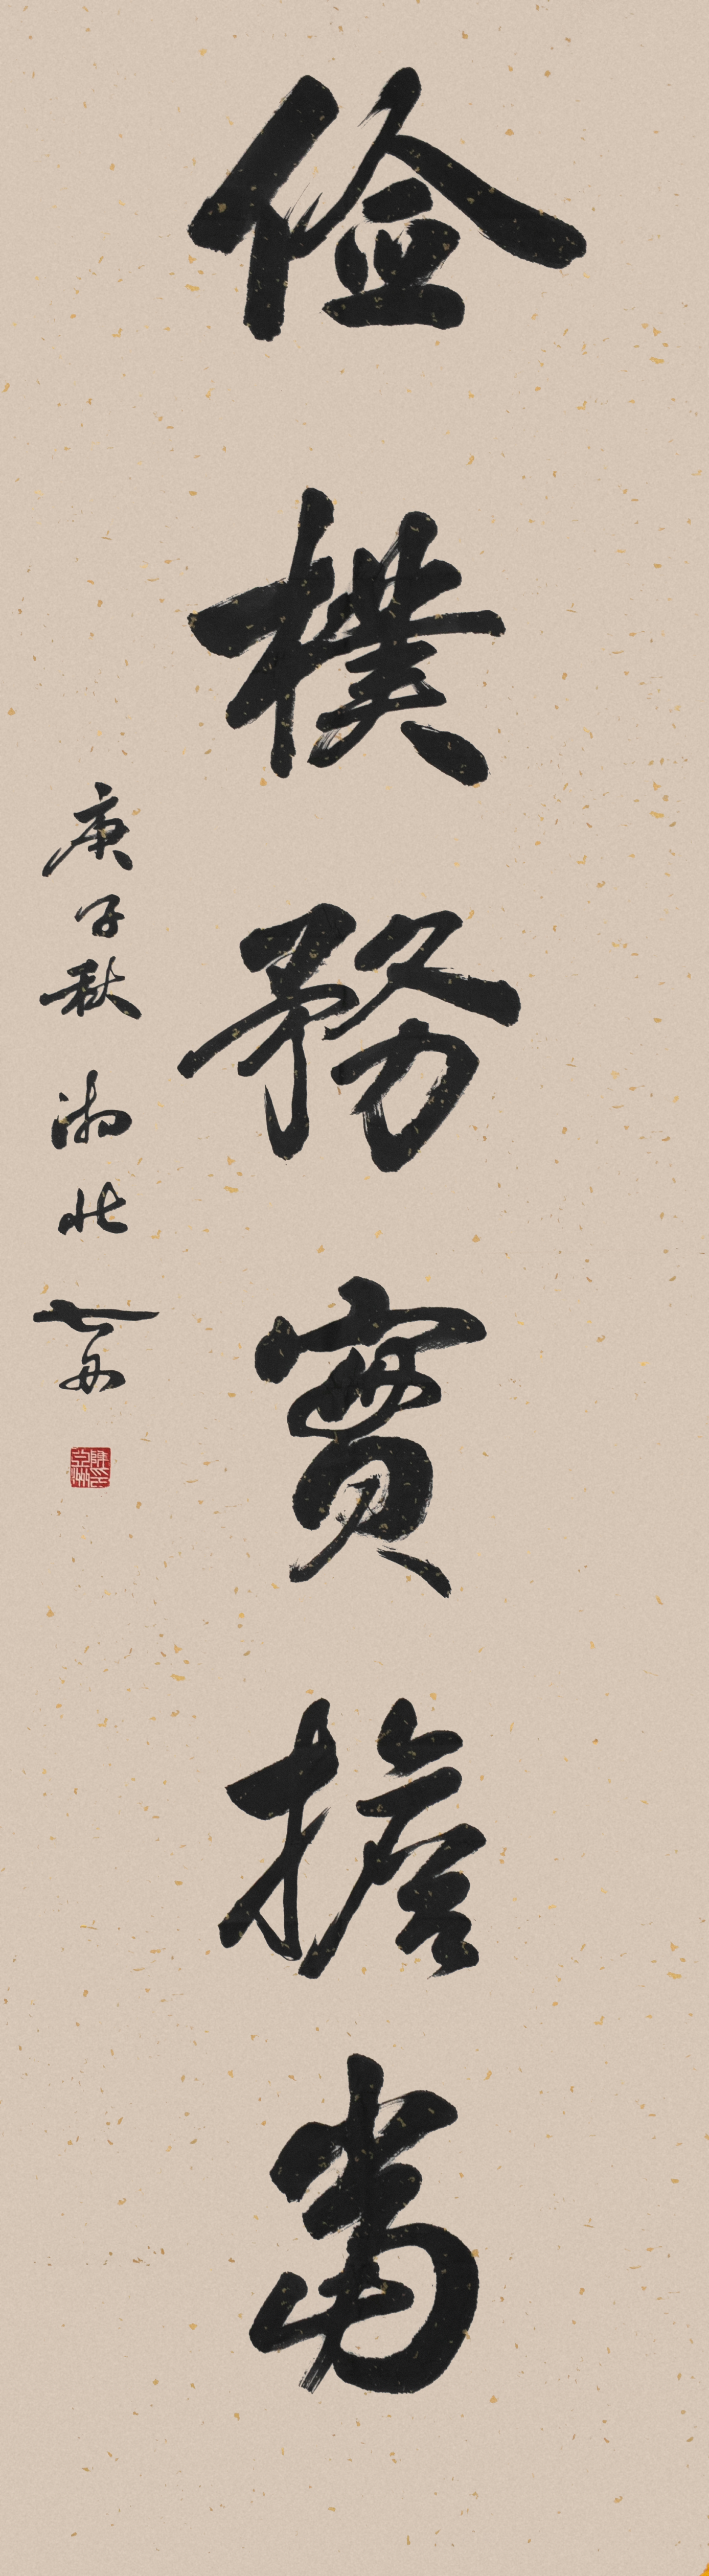 儉樸務實擔當
庚子秋 湖北